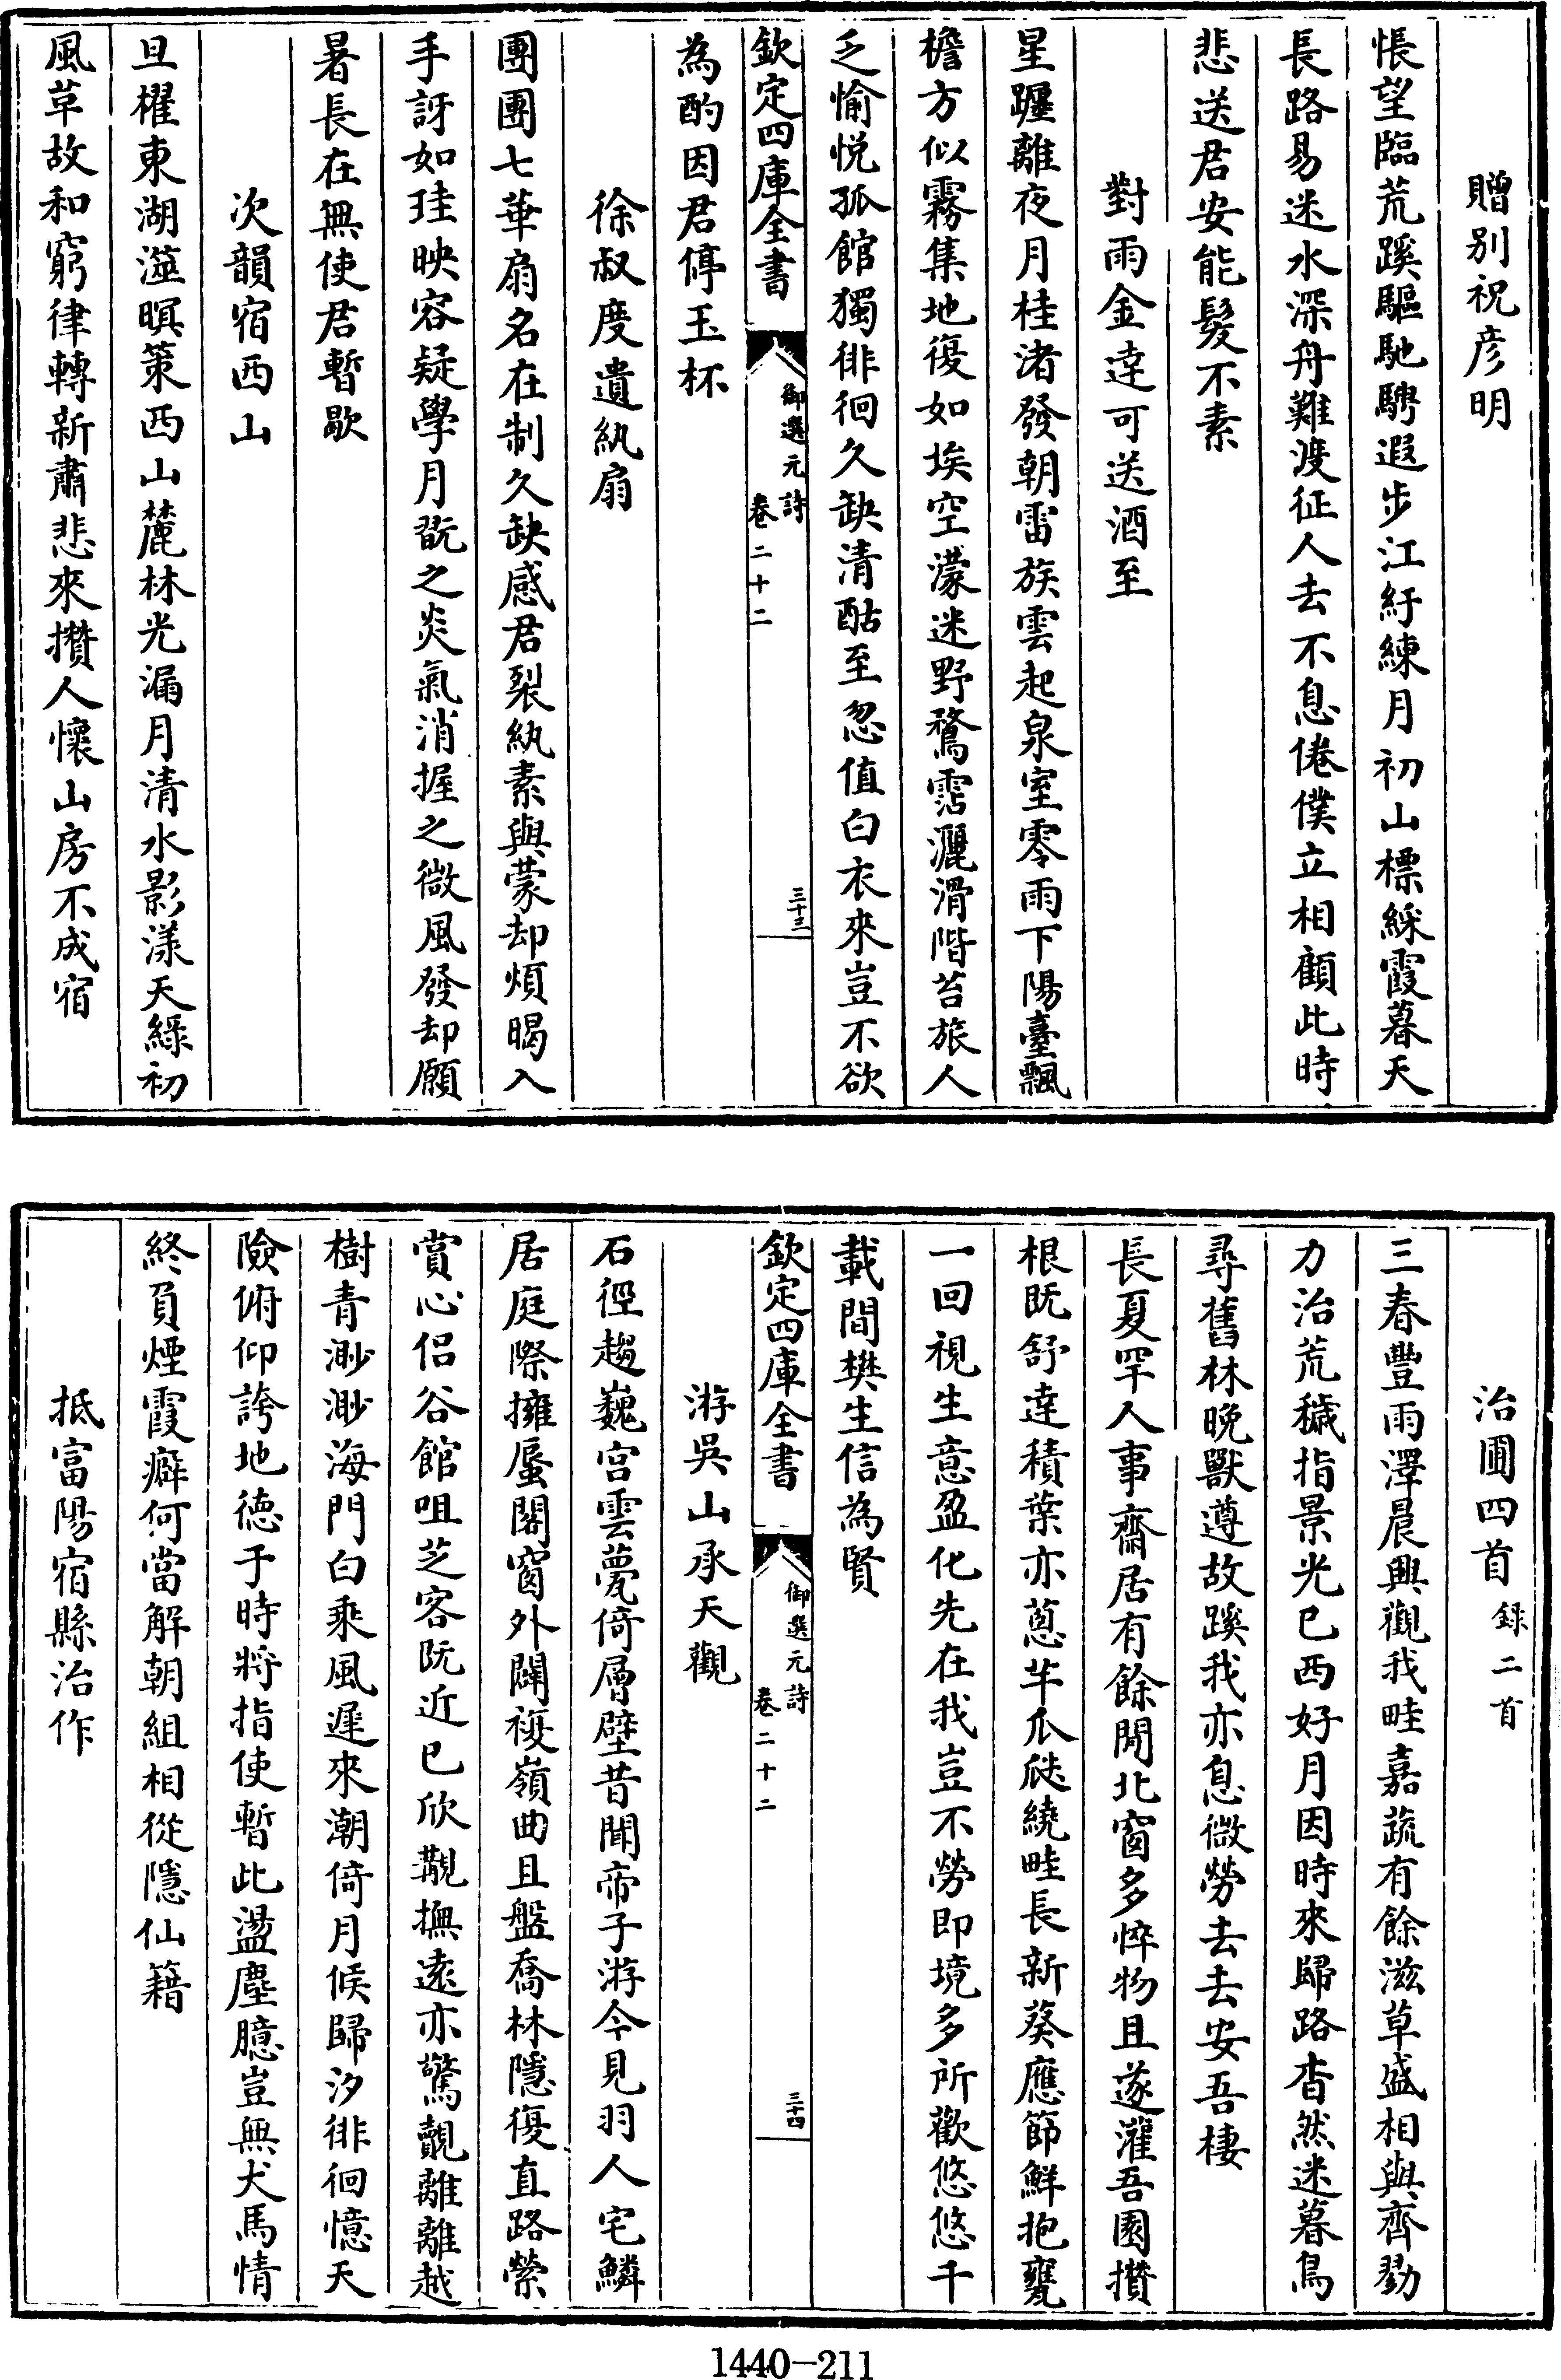 贈别祝彦明
悵望臨荒蹊驅馳騁遐步江紆練月初山標綵霞暮天
長路易迷水深舟難渡征人去不息倦僕立相顧此時
悲送君安能髮不素
對雨金逹可送酒至
星躔離夜月桂渚發朝雷族雲起泉室零雨下陽臺飄
檐方似霧集地復如埃空濛迷野鶩霑灑滑階苔旅人
乏愉悦孤館獨徘徊久缺清酤至忽值白衣來豈不欲
欽定四庫全書
御選元詩
卷二十二
三十三
為酌因君停玉杯
徐叔度遺紈扇
團團七華扇名在制久缺感君裂紈素與蒙却煩暍入
手訝如珪映容疑學月翫之炎氣消握之微風發却願
暑長在無使君暫歇
次韻宿西山
旦櫂東湖澨暝策西山麓林光漏月清水影漾天緑初
風草故和窮律轉新肅悲來攢人懷山房不成宿
治圃四首録二首
三春豐雨澤晨興觀我畦嘉蔬有餘滋草盛相與齊勠
力治荒穢指景光已西好月因時來歸路杳然迷暮鳥
尋舊林晚獸遵故蹊我亦息微勞去去安吾棲
長夏罕人事齋居有餘閒北窗多悴物且遂灌吾園攢
根既舒逹積葉亦蔥芊瓜瓞繞畦長新葵應節鮮抱甕
一回視生意盈化先在我豈不勞即境多所歡悠悠千
載間樊生信為賢
欽定四庫全書
御選元詩
卷二十二
三十四
游吳山承天觀
石徑趨巍宮雲甍倚層壁昔聞帝子游今見羽人宅鱗
居庭際擁蜃閣窗外闢複嶺曲且盤喬林隱復直路縈
賞心侶谷館咀芝客阮近已欣覯撫遠亦驚覿離離越
樹青渺渺海門白乘風遲來潮倚月候歸汐徘徊憶天
險俯仰誇地德于時將指使暫此盪塵臆豈無犬馬情
終負煙霞癖何當解朝組相從隱仙籍
抵富陽宿縣治作
1440-211